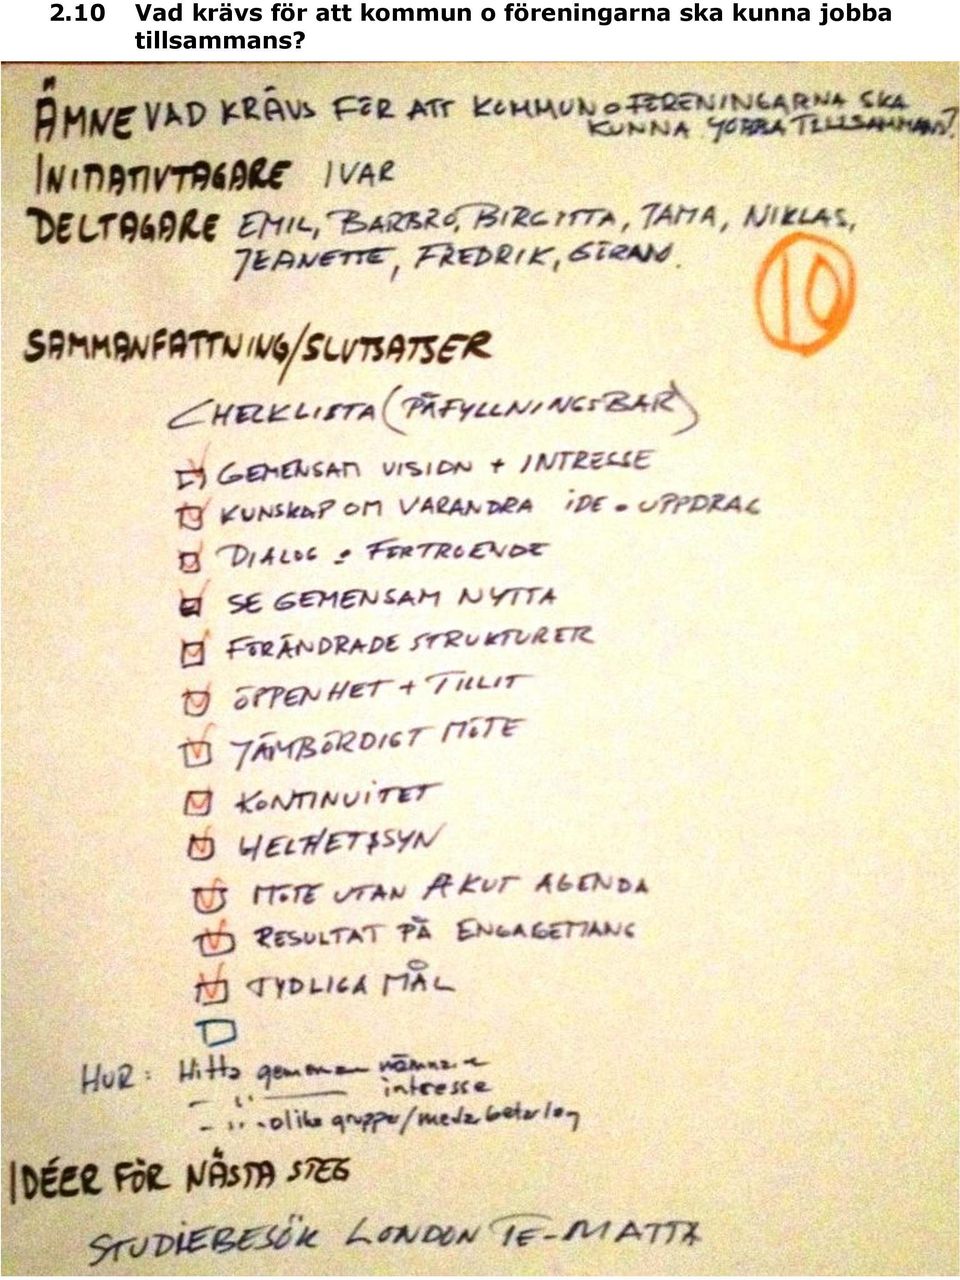 2.10 Vad krävs för att kommun o föreningarna ska kunna jobba
tillsammans?
ÄMNE VAD KRÄVS FÖR ATT KOMMUN o FÖRENINGARNA SKA
KUNNA JOBBA TILLSAMMANS?
INITIATIVTAGARE IVAR
DELTAGARE EMIL, BARBRO, BIRGITTA, TAMA, NIKLAS,
JEANETTE, FREDRIK, GÖRAN.
10
SAMMANFATTNING/SLUTSATSER
CHECKLISTA (PÅFYLLNINGSBAR)
GEMENSAM VISION + INTRESSE
KUNSKAP OM VARANDRA IDE o UPPDRAG
DIALOG o FÖRTROENDE
SE GEMENSAM NYTTA
FÖRÄNDRADE STRUKTURER
ÖPPENHET + TILLIT
JÄMBÖRDIGT MÖTE
KONTINUITET
HELHETSSYN
MÖTE UTAN AKUT AGENDA
RESULTAT PÅ ENGAGEMANG
TYDLIGA MÅL
HUR: Hitta gemensam nämnare
- " intresse
- " - olika grupper/
IDÉER FÖR NÄSTA STEG
STUDIEBESÖK LONDON TE-MATTA